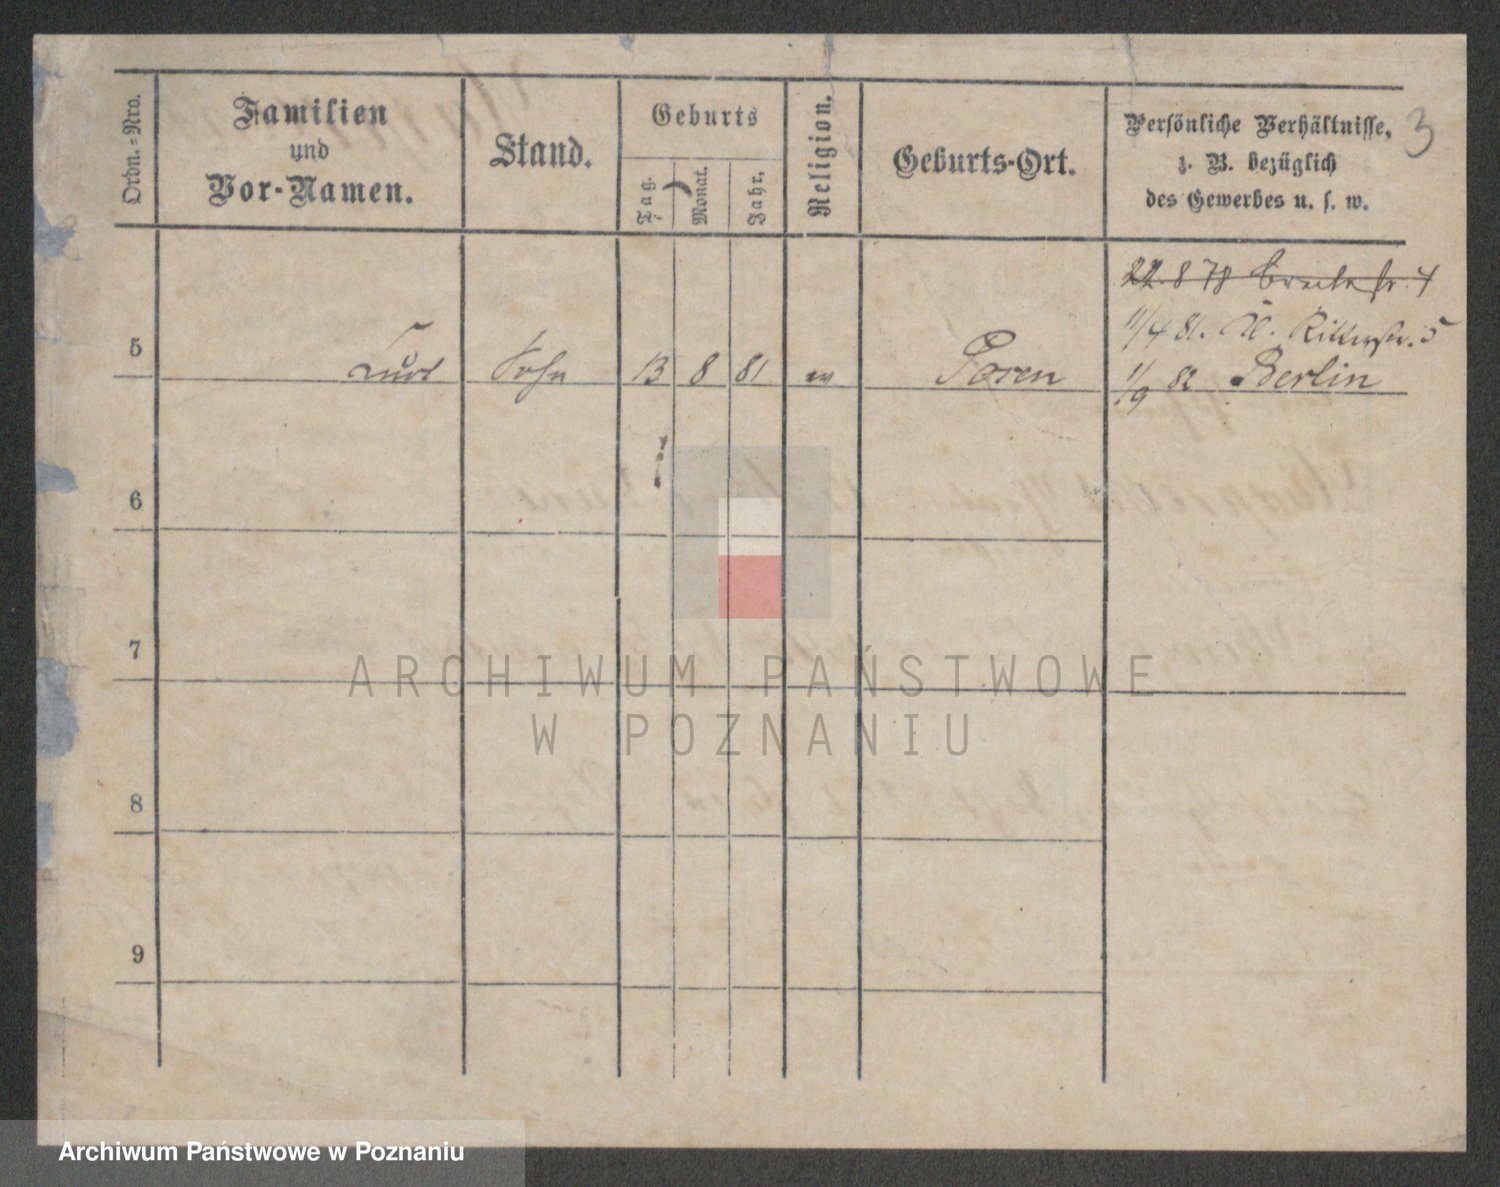 3
Ordn.-Nro.
Familien
und
Vor-Namen.
Stand.
Geburts
Tag.
Monat.
Jahr.
Religion.
Geburts-Ort.
Persönliche Verhältnisse,
z. B. bezüglich
des Gewerbes u. s. w.
22.8 78 Breite str. 4
11/4 81. Kl. Ritterstr. 5
5 Curt Sohn 13 8 81 m Posen 1/9 82 Berlin
6
7
8
9
ARCHIWUM PAŃSTWOWE
W POZNANIU
Archiwum Państwowe w Poznaniu